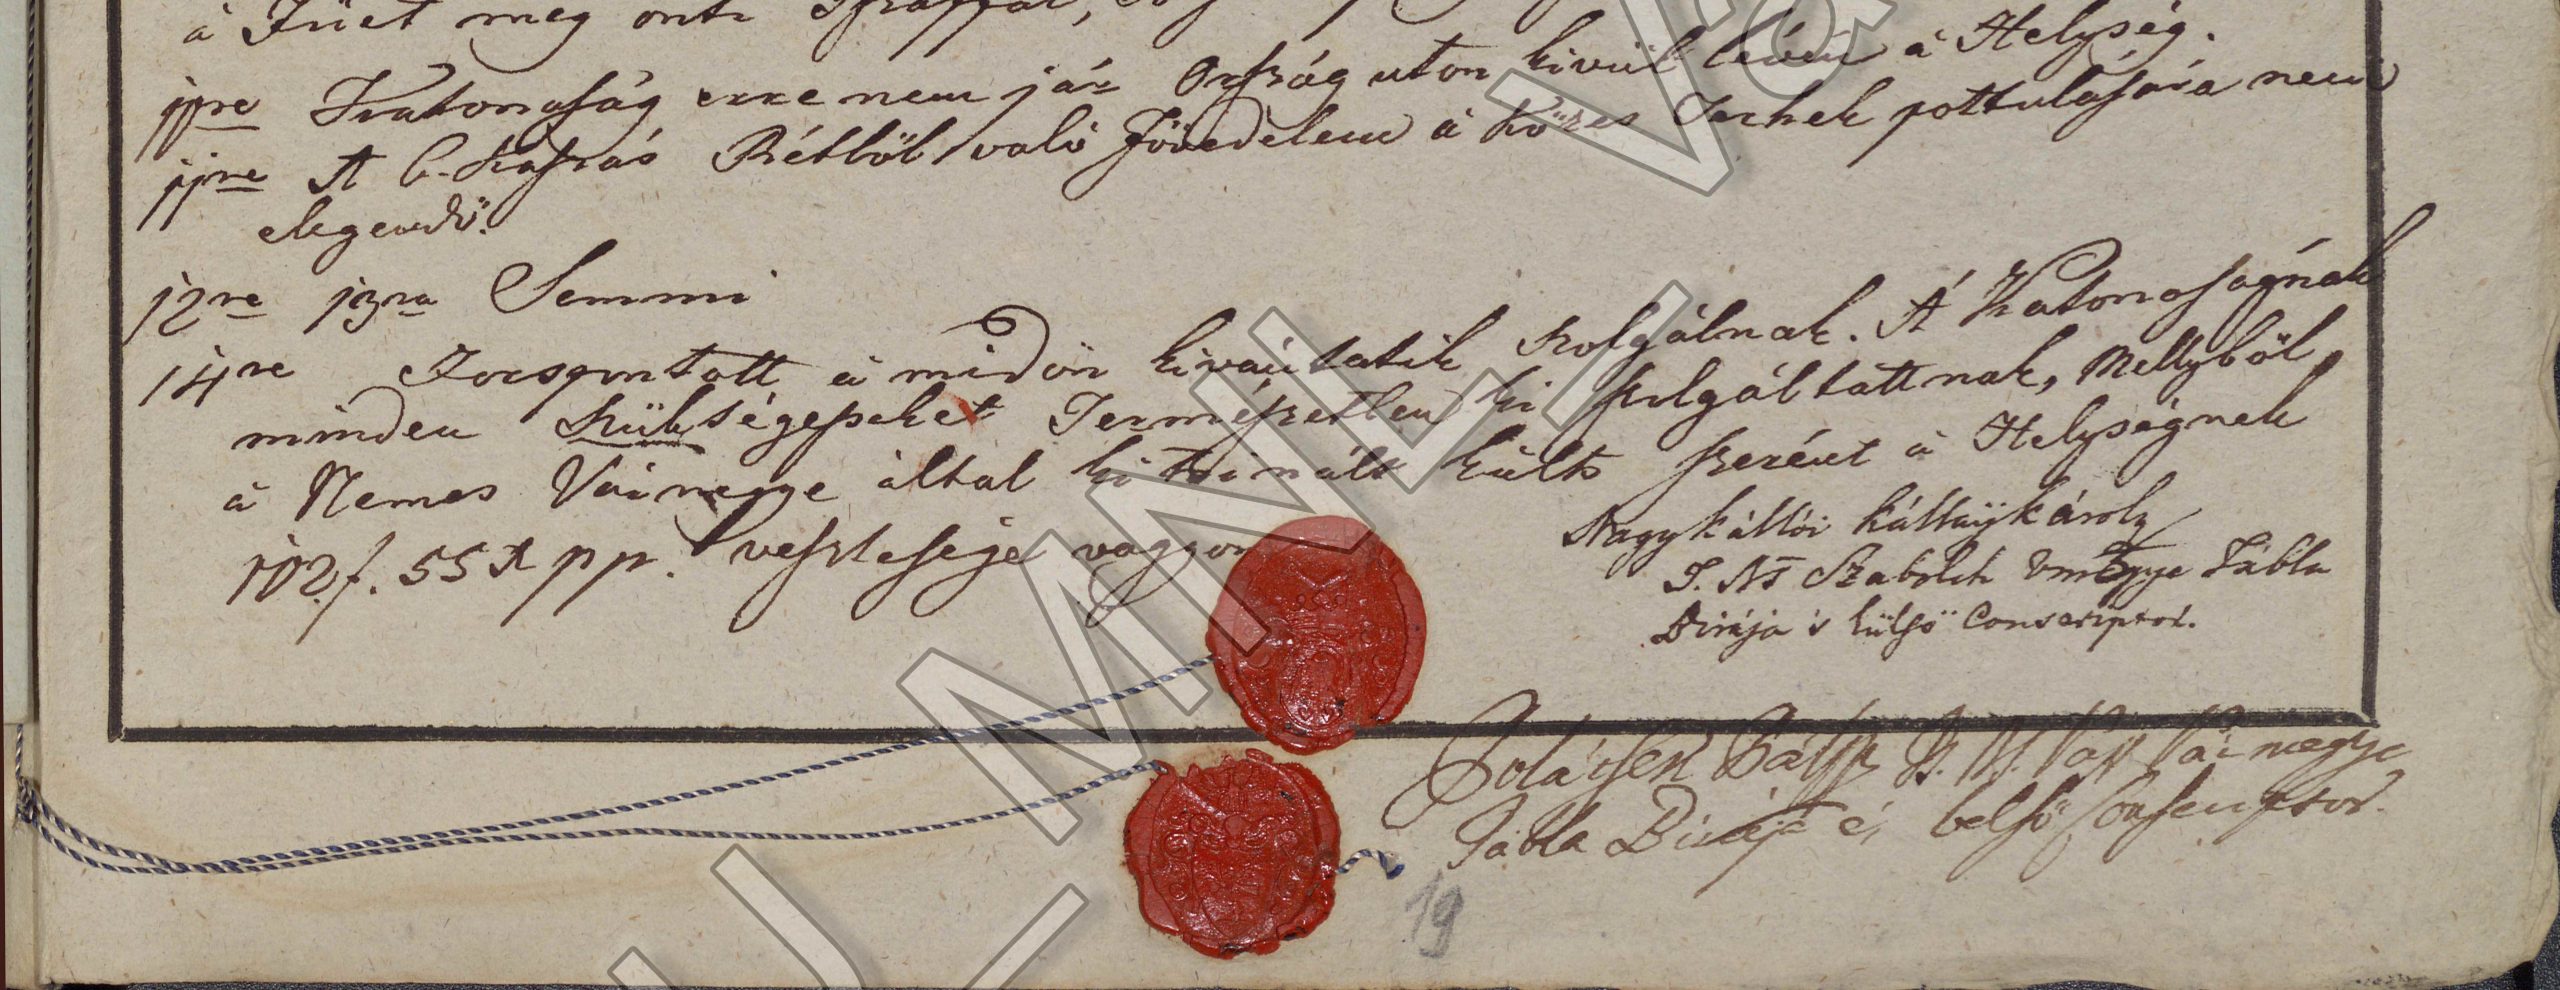 à Füet meg onti
jpre Katonaság erre nem jár Ország uton kivül lévén à Helység.
jjre A C. Kaszás Rétböl való Jövedelem à Közes Terhek pottulására nem
elegendö.
j2re j3ra Semmi
j4re Forspontott à midön kivántatik szolgálnak. A Katonaságnak
minden szükségesseket Termeszetben ki szolgáltattnak, mellyböl
à Nemes Vármegye által ki szinált kults szerént à Helységnek
j02 f. 55 x pp. vesztesége vagyon
Nagy Kállói Kállay Károly
T. N. Szabolch Vmegye Tábla
Birája 's külsö Conscriptor.
T. N. Vas Vármegye
Tábla Birája és belsö Conscriptor.
19
MNL